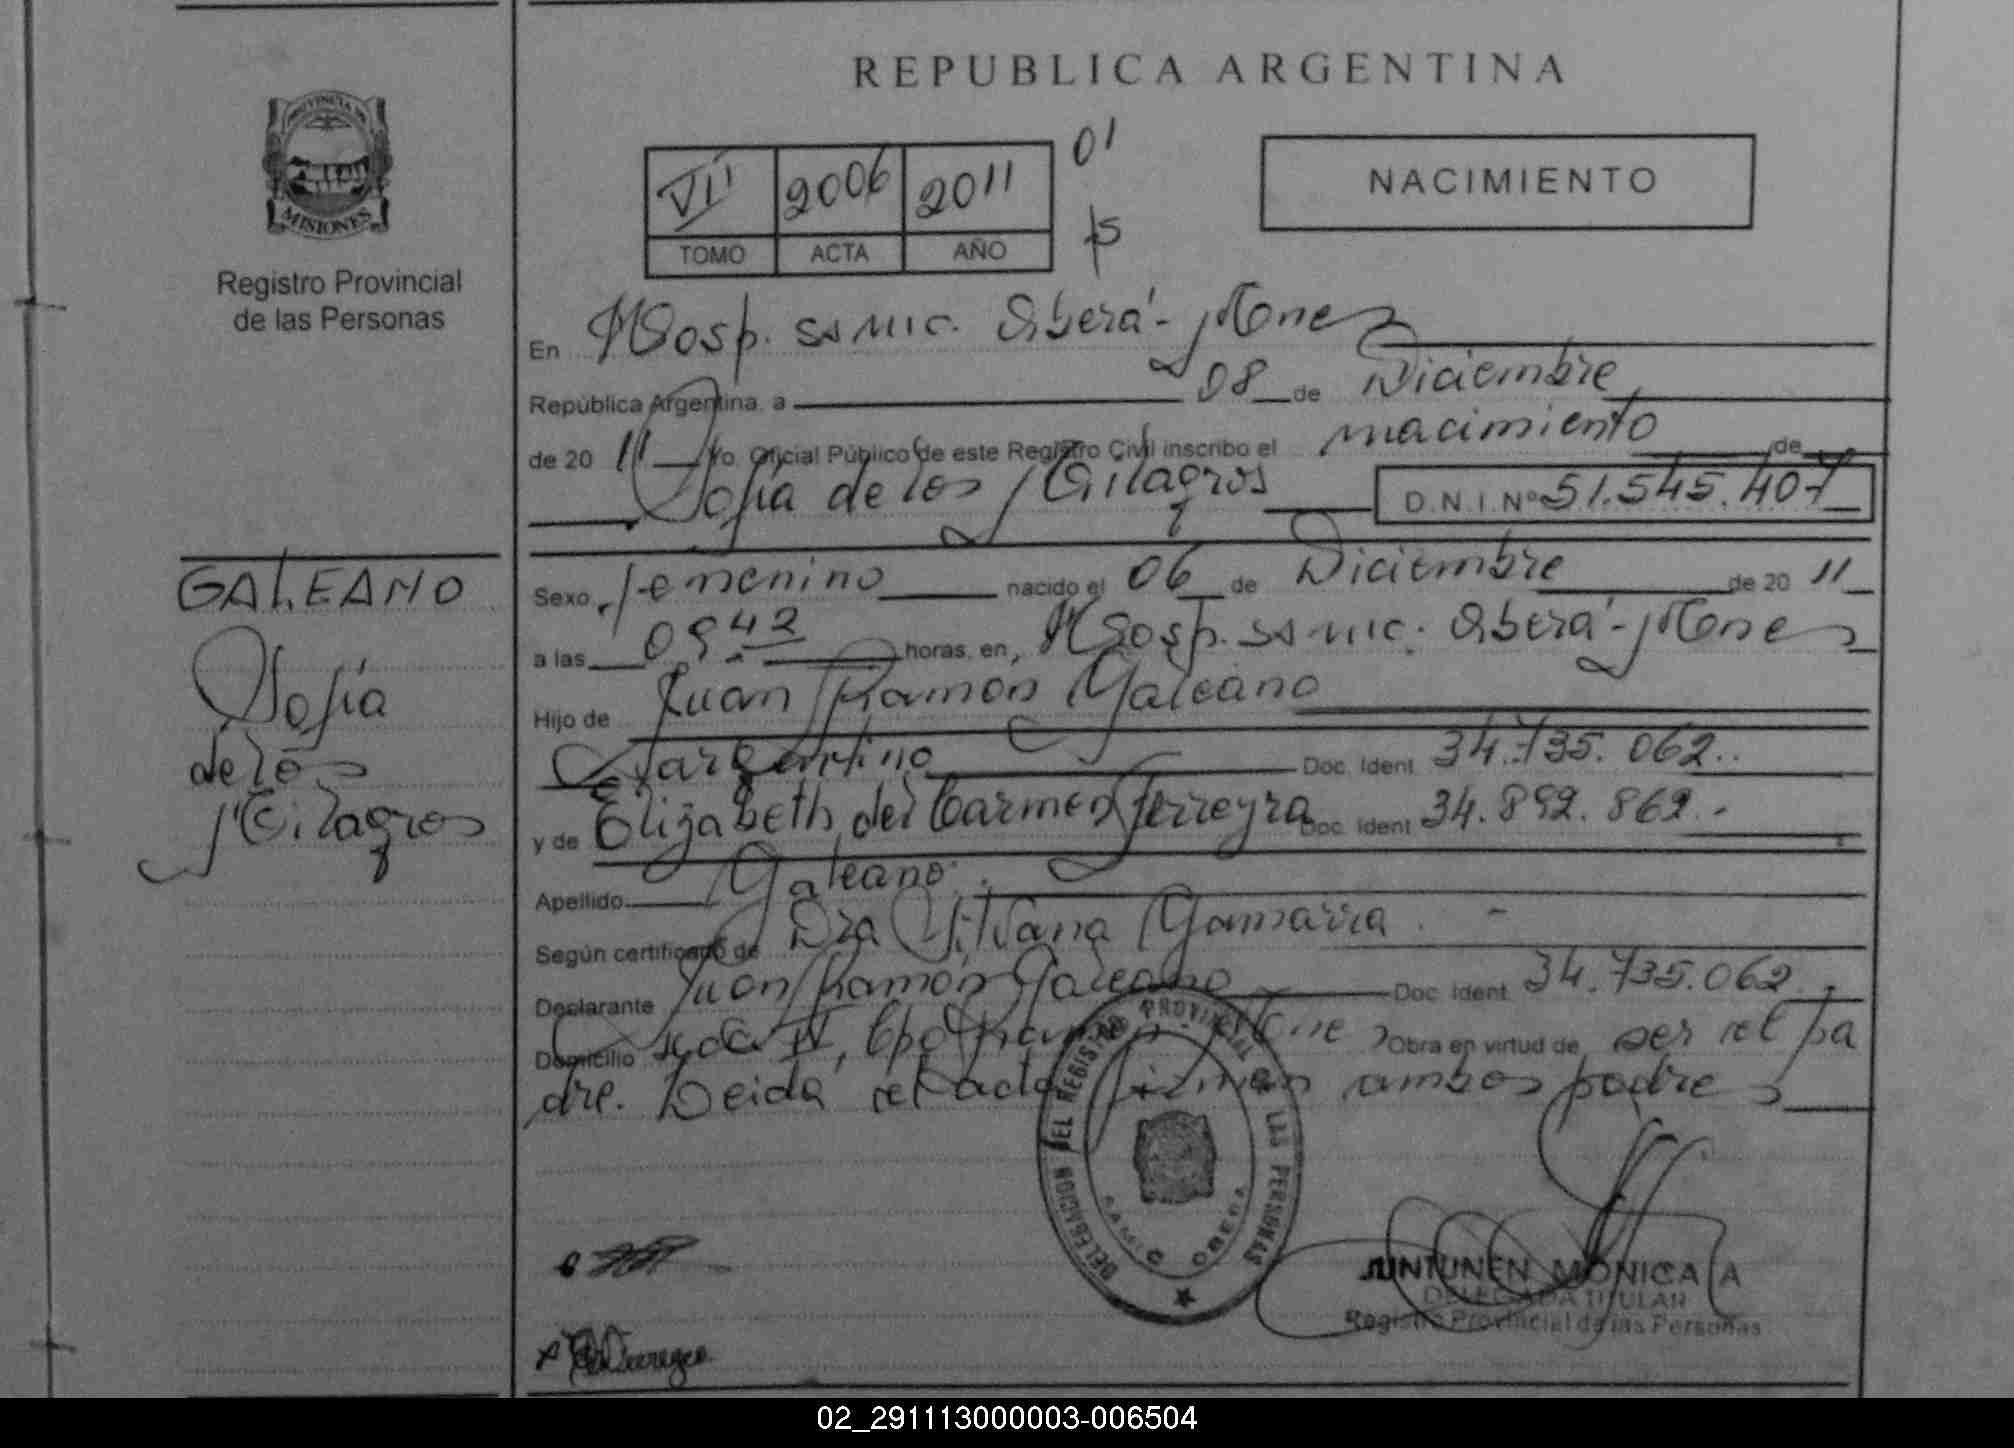 REPUBLICA ARGENTINA
PROVINCIA DE
MISIONES
Registro Provincial
de las Personas
VII 2006 2011 01
TOMO ACTA AÑO
NACIMIENTO
En Hosp. SAMIC. Oberá - Mnes
República Argentina, a 08 de Diciembre
de 20 11 Yo, Oficial Público de este Registro Civil inscribo el nacimiento de
Sofía de los Milagros D.N.I.Nº 51.545.407
GALEANO
Sofía
de los
Milagros
Sexo femenino nacido el 06 de Diciembre de 20 11
a las 0942 horas, en Hosp. SAMIC. Oberá - Mnes
Hijo de Juan Ramón Galeano
Argentino Doc. Ident. 34.735.062.
y de Elizabeth del Carmen Ferreyra Doc. Ident. 34.892.862.-
Apellido Galeano.
Según certificado de Dra Silvana Gamarra. -
Declarante Juan Ramón Galeano Doc. Ident. 34.735.062.
Domicilio IV, Cpo Ramón, Mnes Obra en virtud de ser el pa
dre. Leida el acta firman ambos padres
DELEGACION DEL REGISTRO PROVINCIAL DE LAS PERSONAS
SAMIC OBERA
JUNTUNEN MONICA A
DELEGADA TITULAR
Registro Provincial de las Personas
02_291113000003-006504